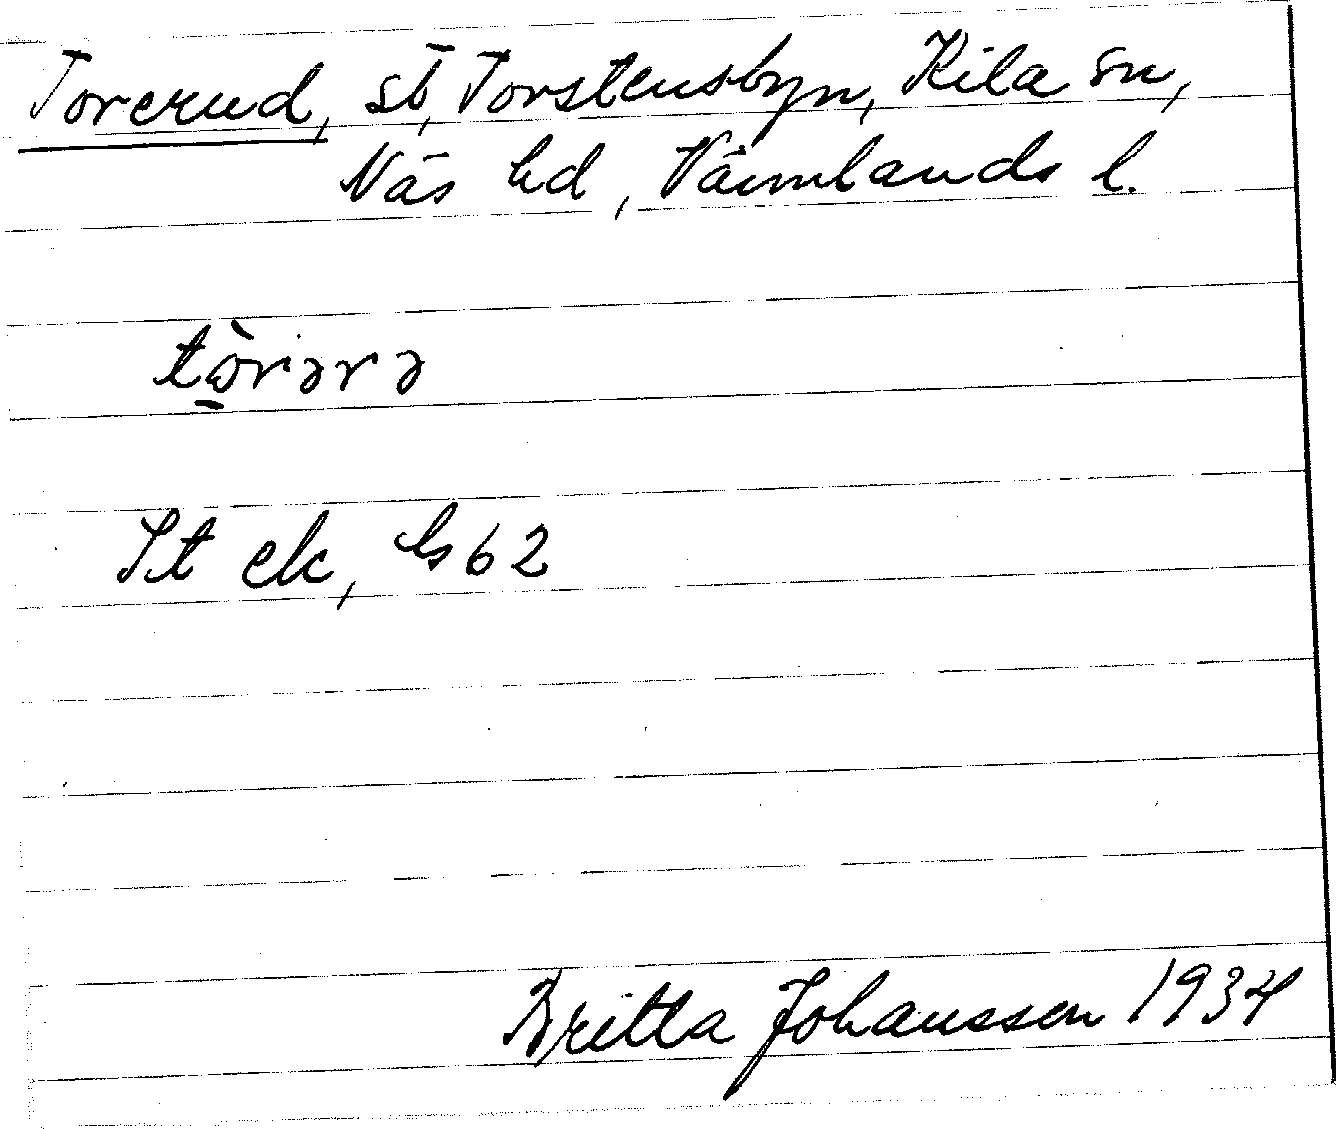 Torerud, st, Torstensbyn, Kila sn,
Näs hd, Värmlands l.
tὼ̱rərə
St ek, Gs 62
Britta Johansson 1934